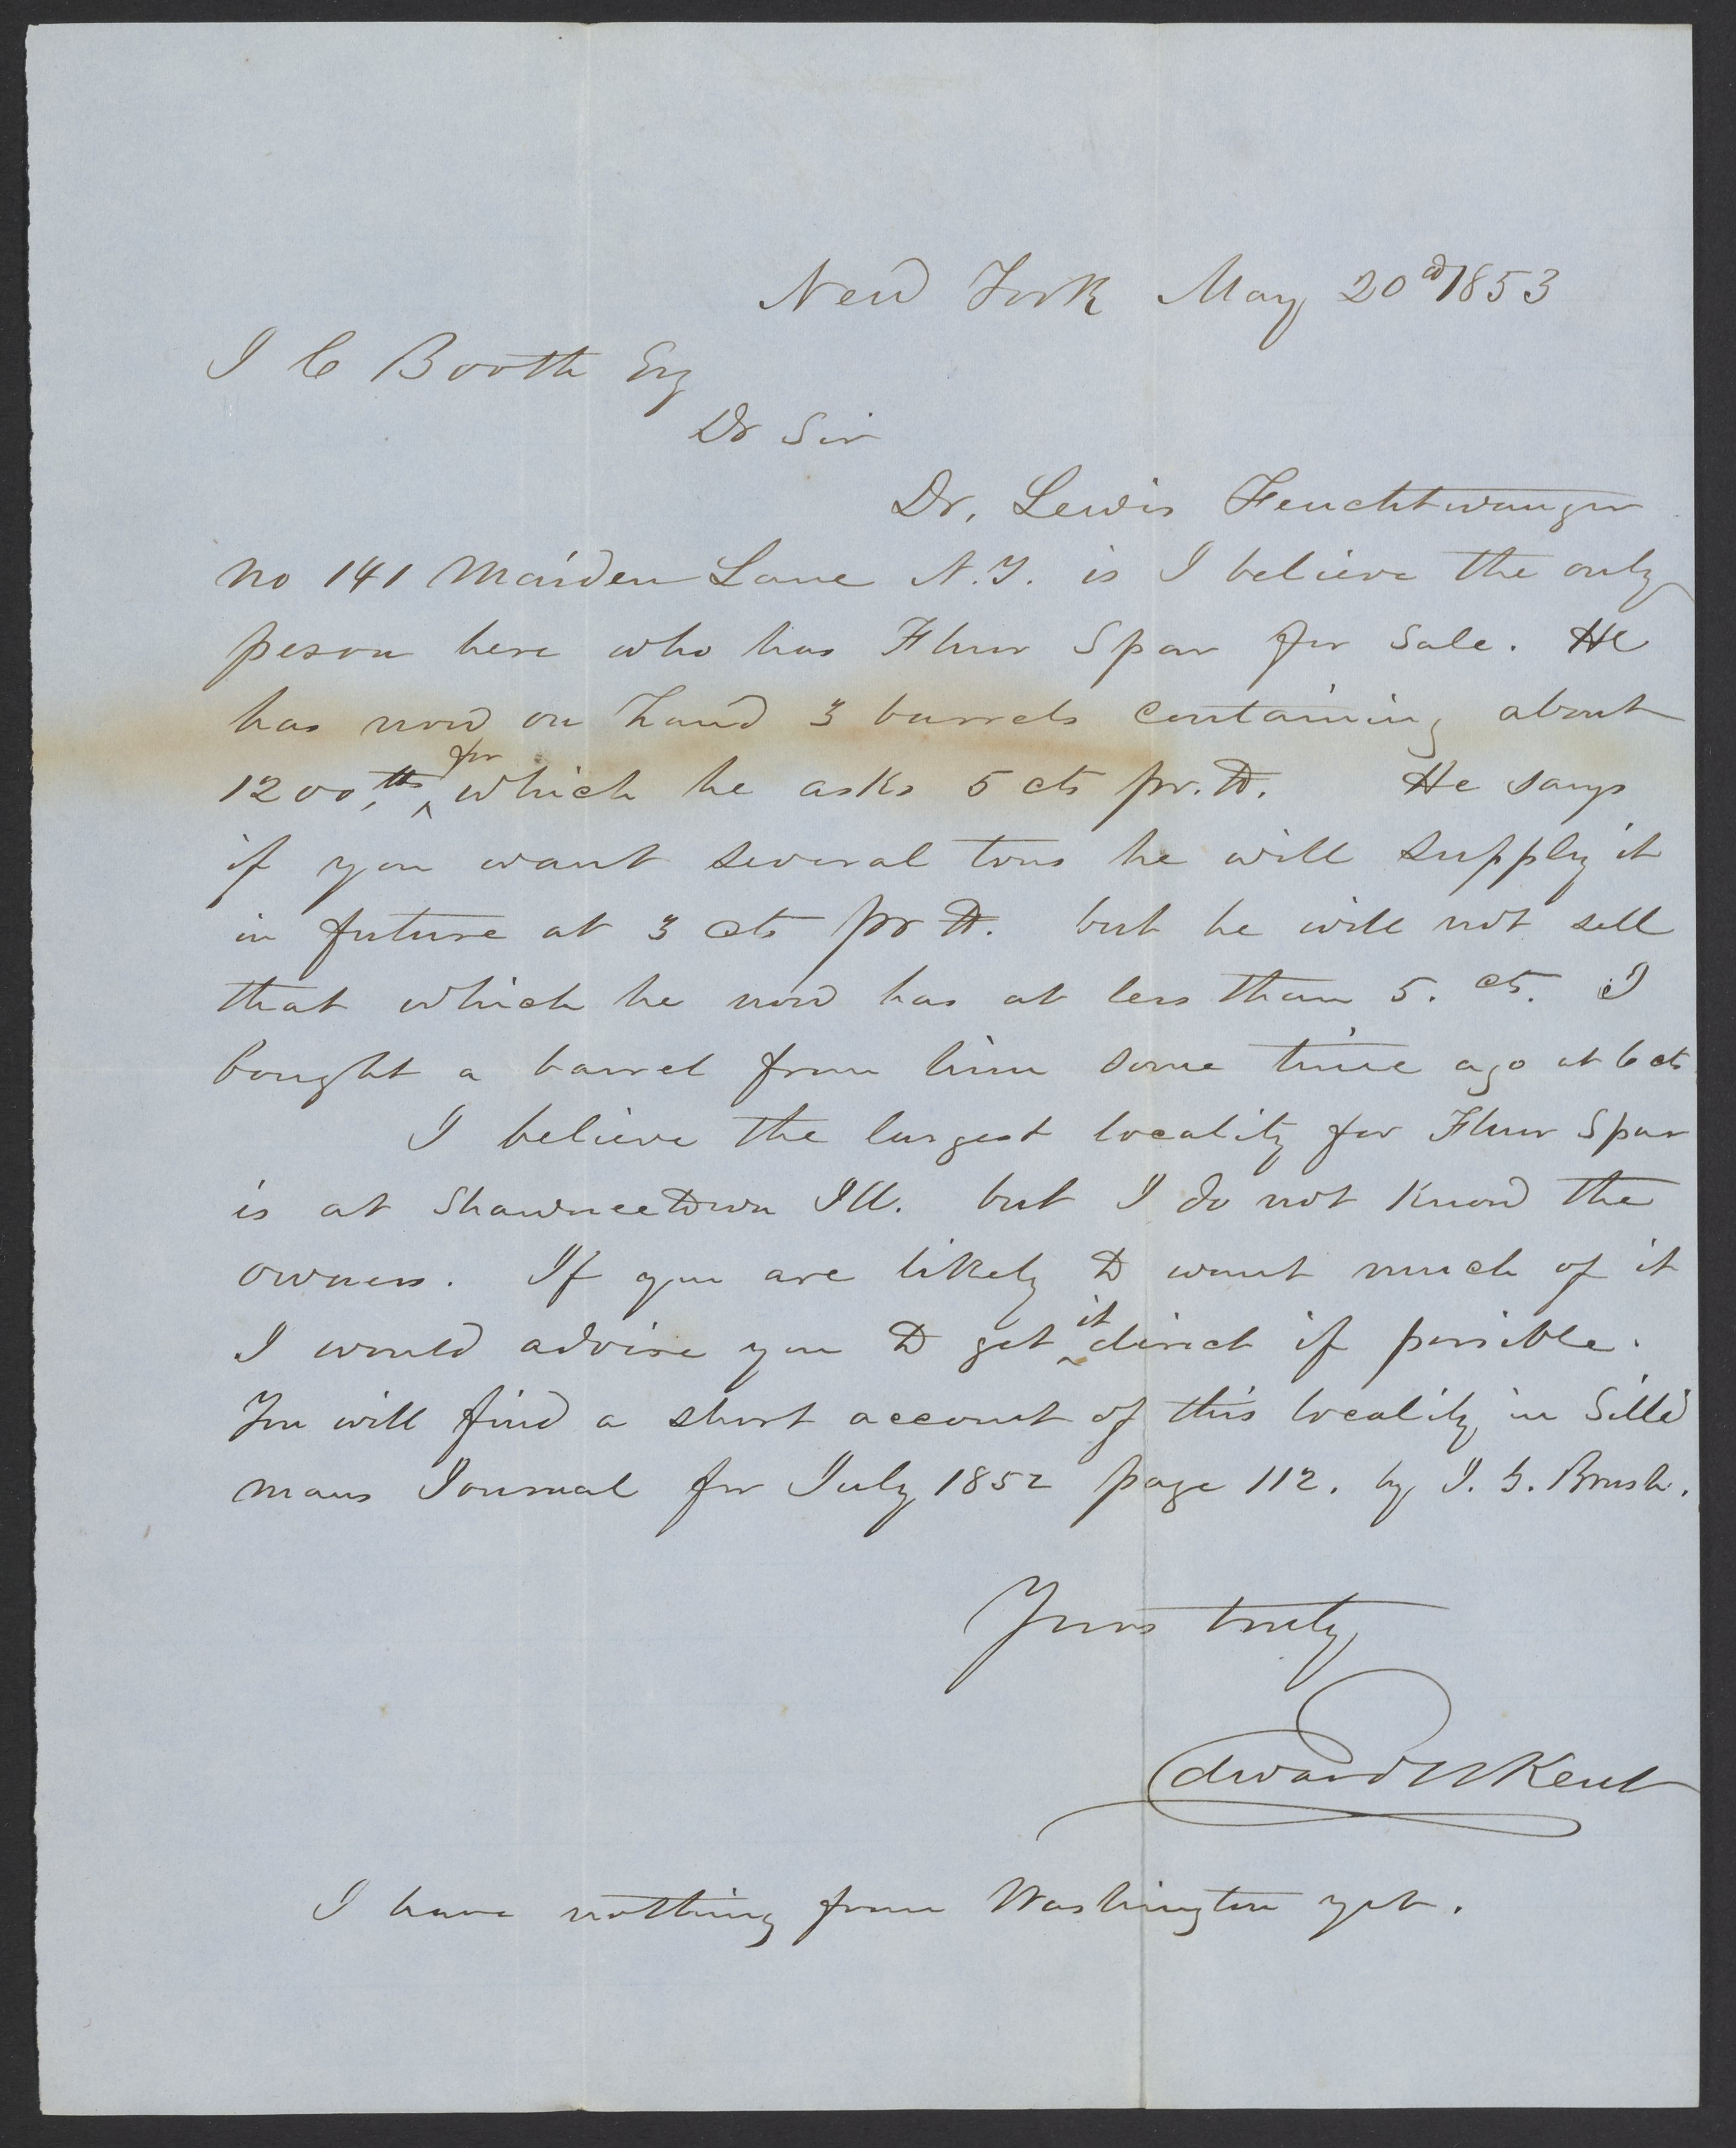 New York May 20th 1853
J C Booth Esq
Dr Sir
Dr. Lewis Feuchtwanger
No 141 Maiden Lane N.Y. is I believe the only
peson here who has Fluor Spar for sale. He
has now on hand 3 barrels containing about
1200 lbs for which he asks 5 cts pr. lb. He says
if you want several tons he will supply it
in future at 3 cts pr lb. but he will not sell
that which he now has at less than 5. cts. I
bought a barrel from him some time ago at 6 cts
I believe the largest locality for Fluor Spar
is at Shawneetown Ill. but I do not know the
owners. If you are likely to want much of it
I would advise you to get it direct if possible.
You will find a short account of this locality in Silli
mans Journal for July 1852 page 112. by J. G. Brush.
Yours truly
Edward N Kent
I have nothing from Washington yet.